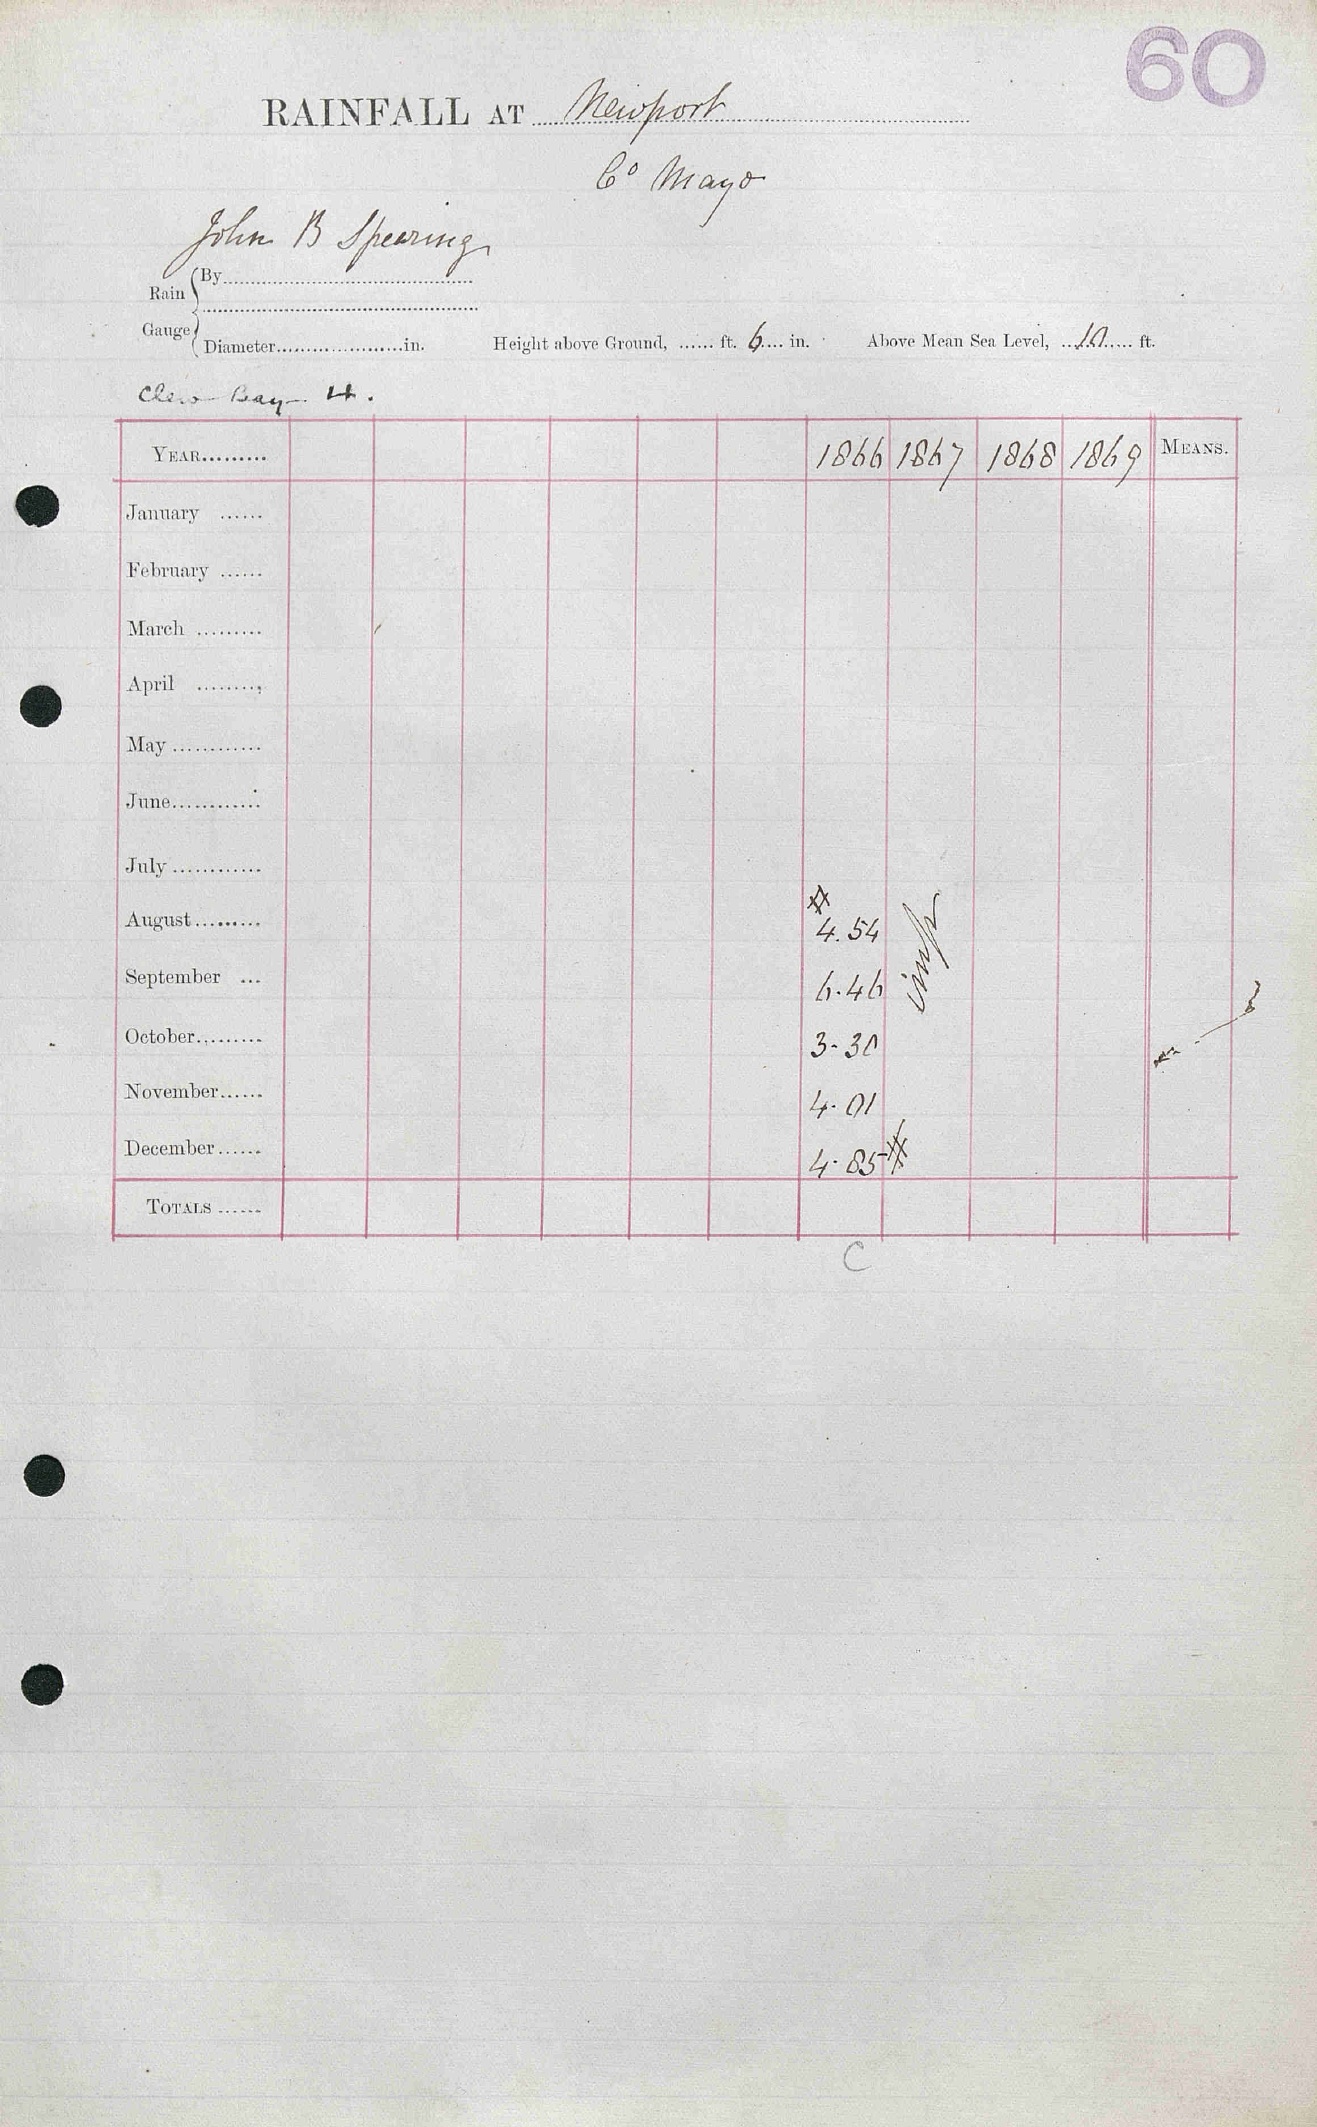 60
RAINFALL AT Newport
Co Mayo
John B Spearing
Rain Gauge { By
Diameter in. Height above Ground, ft. 6 in. Above Mean Sea Level, 10 ft.
Clew Bay H.
YEAR 1866 1867 1868 1869 MEANS.
January
February
March
April
May
June
July
August 4.54
September 6.46
October 3.30
November 4.01
December 4.85
TOTALS
C